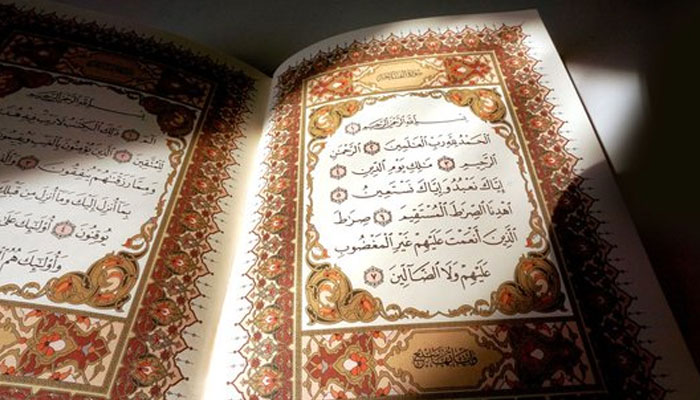 سُورَةُ الْفَاتِحَةِ
بِسْمِ اللَّهِ الرَّحْمَٰنِ الرَّحِيمِ ١
الْحَمْدُ لِلَّهِ رَبِّ الْعَٰلَمِينَ ٢ الرَّحْمَٰنِ
الرَّحِيمِ ٣ مَٰلِكِ يَوْمِ الدِّينِ ٤
إِيَّاكَ نَعْبُدُ وَإِيَّاكَ نَسْتَعِينُ ٥
اهْدِنَا الصِّرَٰطَ الْمُسْتَقِيمَ ٦ صِرَٰطَ
الَّذِينَ أَنْعَمْتَ عَلَيْهِمْ غَيْرِ الْمَغْضُوبِ
عَلَيْهِمْ وَلَا الضَّآلِّينَ ٧
وآياتها سبع
بِسْمِ اللَّهِ الرَّحْمَٰنِ الرَّحِيمِ
الٓمٓ ١ ذَٰلِكَ الْكِتَٰبُ لَا رَيْبَ فِيهِ هُدًى
لِّلْمُتَّقِينَ ٢ الَّذِينَ يُؤْمِنُونَ بِالْغَيْبِ وَيُقِيمُونَ
وَمِمَّا رَزَقْنَٰهُمْ يُنفِقُونَ ٣
بِمَآ أُنزِلَ إِلَيْكَ وَمَآ أُنزِلَ مِن قَبْلِكَ
يُوقِنُونَ ٤ أُولَٰٓئِكَ عَلَىٰ
وَأُولَٰٓئِكَ هُمُ